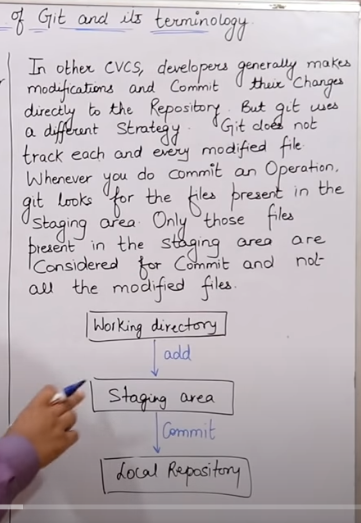 of Git and its terminology.
In other CVCS, developers generally makes
modifications and Commit their Changes
directly to the Repository. But git uses
a different Strategy. Git does not
track each and every modified file.
Whenever you do commit an Operation,
git looks for the files present in the
Staging area. Only those files
present in the staging area are
Considered for Commit and not
all the modified files.
Working directory
add
Staging area
Commit
Local Repository